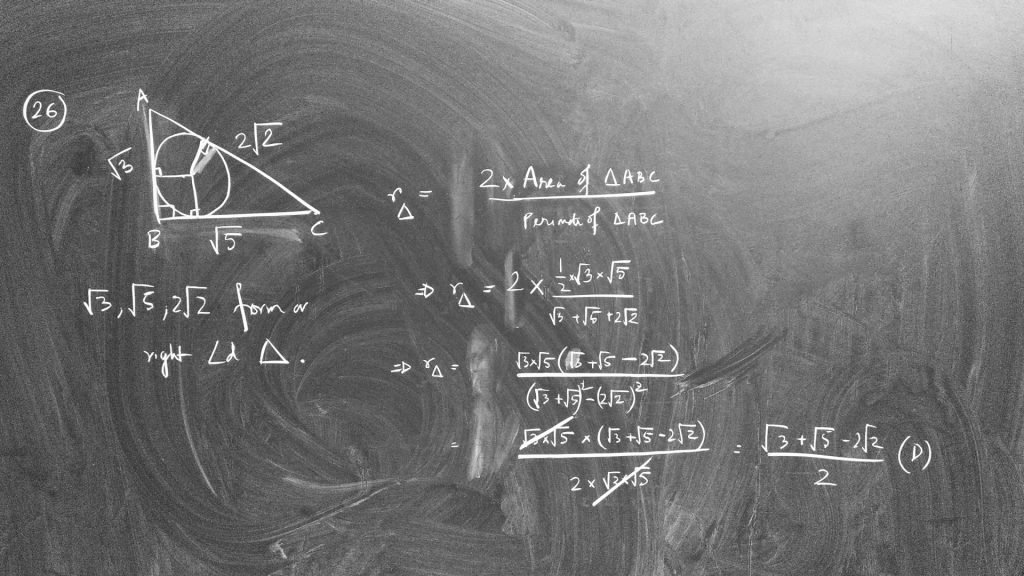 26
A
√3
2√2
B
√5
C
√3, √5, 2√2 form a
right ∠d Δ.
r_Δ = 2 × Area of ΔABC / Perimete of ΔABC
⇒ r_Δ = 2 × (1/2 × √3 × √5) / (√3 + √5 + 2√2)
⇒ r_Δ = √3×√5 (√3 + √5 − 2√2) / ((√3 + √5)² − (2√2)²)
= √3×√5 × (√3 + √5 − 2√2) / (2 × √3×√5) = (√3 + √5 − 2√2) / 2 (D)